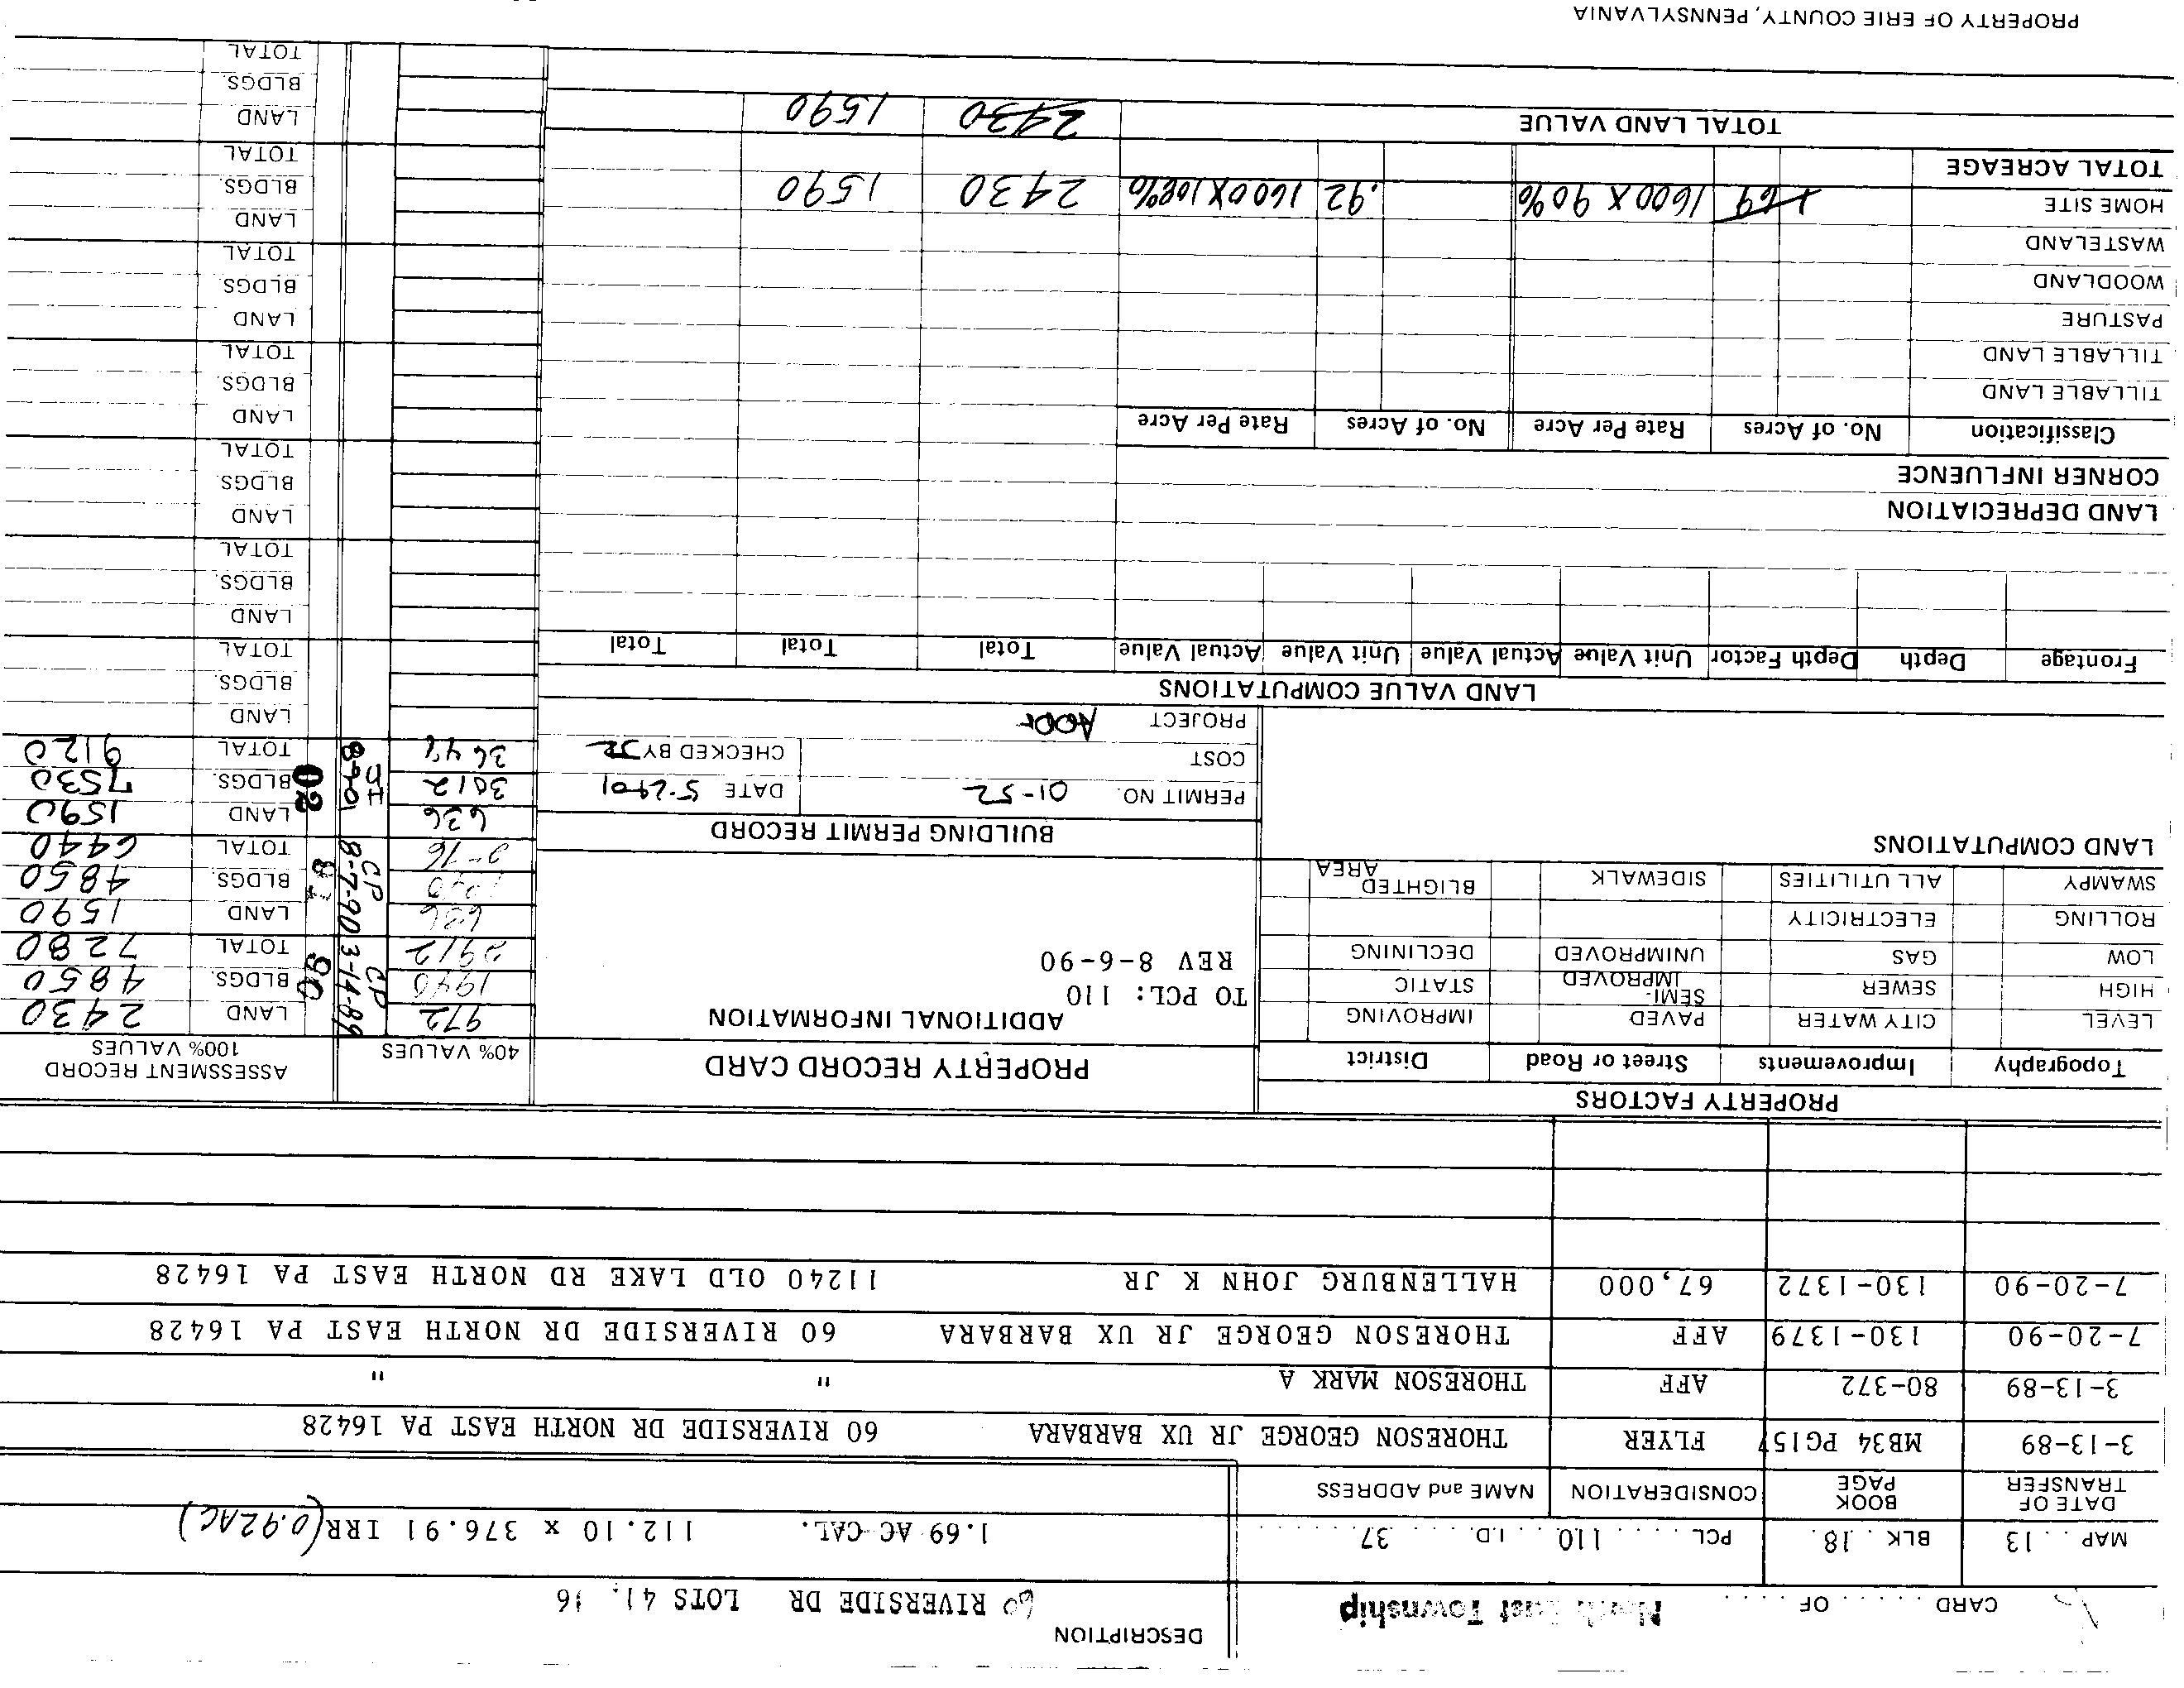 CARD ..... OF ..... North East Township
MAP .. 13 BLK .. 18 . PCL ..... 110 .. I.D. .... 37 ......
DESCRIPTION
60 RIVERSIDE DR LOTS 41,
1.69 AC-CAL. 112.10 x 376.91 IRR (0.92AC)
DATE OF TRANSFER BOOK PAGE CONSIDERATION NAME and ADDRESS
3-13-89 MB34 PG157 FLYER THORESON GEORGE JR UX BARBARA 60 RIVERSIDE DR NORTH EAST PA 16428
3-13-89 80-372 AFF THORESON MARK A " "
7-20-90 130-1379 AFF THORESON GEORGE JR UX BARBARA 60 RIVERSIDE DR NORTH EAST PA 16428
7-20-90 130-1372 67,000 HALLENBURG JOHN K JR 11240 OLD LAKE RD NORTH EAST PA 16428
PROPERTY FACTORS
Topography Improvements Street or Road District
LEVEL CITY WATER PAVED IMPROVING
HIGH SEWER SEMI-IMPROVED STATIC
LOW GAS UNIMPROVED DECLINING
ROLLING ELECTRICITY
SWAMPY ALL UTILITIES SIDEWALK BLIGHTED AREA
LAND COMPUTATIONS
PROPERTY RECORD CARD
ADDITIONAL INFORMATION
TO PCL: 110
REV 8-6-90
BUILDING PERMIT RECORD
PERMIT NO. 01-52 DATE 5-29-01
COST CHECKED BY JR
PROJECT ADDN
40% VALUES ASSESSMENT RECORD 100% VALUES
972 CP 3-14-89 90 LAND 2430
1940 BLDGS. 4850
2912 TOTAL 7280
636 CP 8-7-90 91 LAND 1590
1940 BLDGS. 4850
TOTAL 6440
636 02 LAND 1590
3012 BLDGS. 7530
3648 TOTAL 9120
LAND
BLDGS.
TOTAL
LAND
BLDGS.
TOTAL
LAND
BLDGS.
TOTAL
LAND
BLDGS.
TOTAL
LAND
BLDGS.
TOTAL
LAND
BLDGS.
TOTAL
LAND
BLDGS.
TOTAL
LAND VALUE COMPUTATIONS
Frontage Depth Depth Factor Unit Value Actual Value Unit Value Actual Value Total Total Total
LAND DEPRECIATION
CORNER INFLUENCE
Classification No. of Acres Rate Per Acre No. of Acres Rate Per Acre
TILLABLE LAND
TILLABLE LAND
PASTURE
WOODLAND
WASTELAND
HOME SITE 1.69 1600 X 90% .92 1600X108% 2430 1590
TOTAL ACREAGE
TOTAL LAND VALUE 2430 1590
PROPERTY OF ERIE COUNTY, PENNSYLVANIA